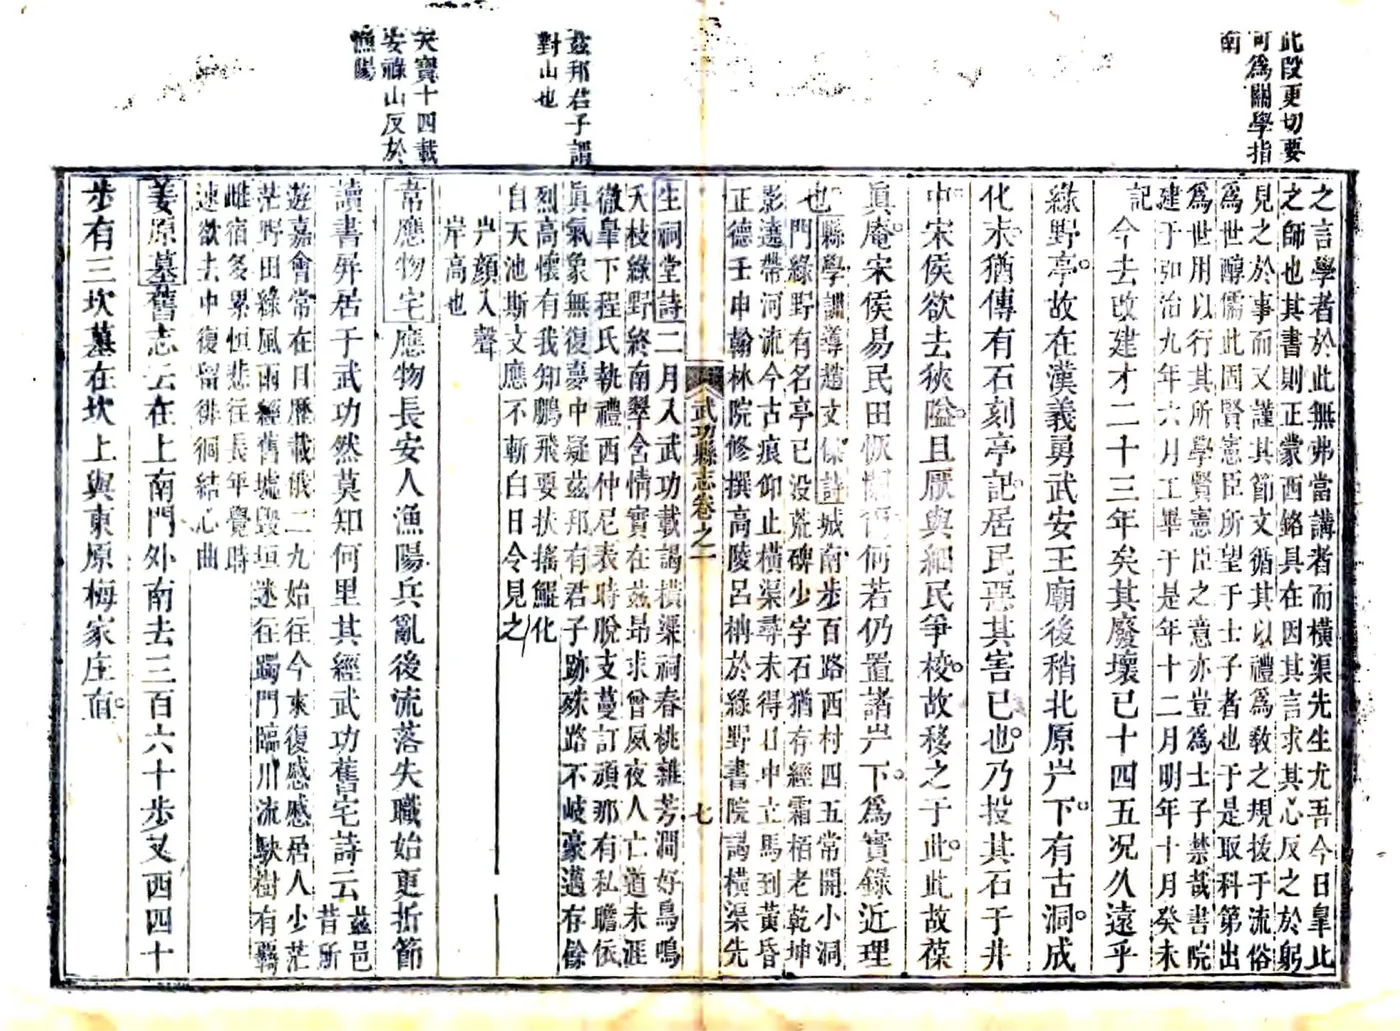 此段更切要
可為關學指
南
茲邦君子謂
對山也
天寶十四載
安祿山反於
漁陽
之言學者於此無弗當講者而橫渠先生尤吾今日臯比
之師也其書則正蒙西銘具在因其言求其心反之於躬
見之於事而又謹其節文循其以禮為教之規拔于流俗
為世醇儒此固賢憲臣所望于士子者也于是取科第出
為世用以行其所學賢憲臣之意亦豈為士子禁哉書院
建于弘治九年六月工畢于是年十二月明年十月癸未
記
今去改建才二十三年矣其廢壞已十四五况久遠乎
綠野亭故在漢義勇武安王廟後稍北原屵下有古洞成
化末猶傳有石刻亭記居民惡其害已也乃投其石于井
中宋侯欲去狹隘且厭與細民爭校故移之于此此故葆
真庵宋侯易民田恢闢何若仍置諸屵下為實錄近理
也縣學訓導趙文傑詩城南步百路西村四五常開小洞
門綠野有名亭已没荒碑少字石猶有經霜栢老乾坤
影遠帶河流今古痕仰止橫渠尋未得日中立馬到黃昏
正德壬申翰林院修撰高陵呂柟於綠野書院謁橫渠先
武功縣志卷之一
七
生祠堂詩二月入武功載謁橫渠祠春桃雜芳澗好鳥鳴
夭枝綠野終南翠含情實在茲昂求曾夙夜人亡道未涯
徹臯下程氏執禮西仲尼表時脫支蔓訂頑那有私瞻依
真氣象無復夢中疑茲邦有君子跡殊路不岐豪邁存餘
烈高懷有我知鵬飛要扶搖鯤化
自天池斯文應不斬白日令見之
屵顏入聲
岸高也
韋應物宅應物長安人漁陽兵亂後流落失職始更折節
讀書屏居于武功然莫知何里其經武功舊宅詩云茲邑
昔所
遊嘉會常在目歷載俄二九始往今來復感感居人少茫
茫野田綠風雨經舊墟毀垣迷往躅門臨川流駛樹有羈
雌宿多累恒悲往長年覺時
速欲去中復留徘徊結心曲
姜原墓舊志云在上南門外南去三百六十步又西四十
步有三坎墓在坎上與東原梅家庄直